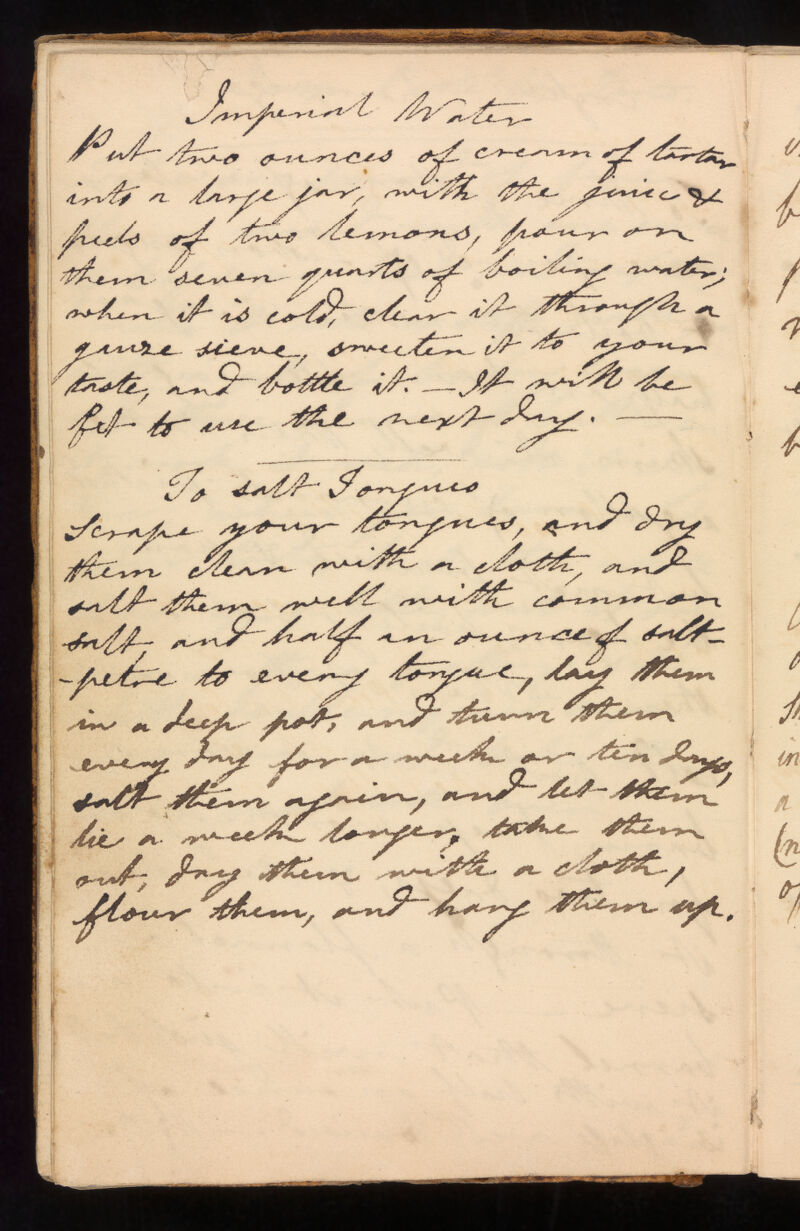 Imperial Water
Put two ounces of cream of tartar
into a large jar, with the juice &
peels of two lemons, pour on
them seven quarts of boiling water;
when it is cold, clear it through a
gauze sieve, sweeten it to your
taste, and bottle it. — It will be
fit to use the next day. —
To salt Tongues
Scrape your tongues, and dry
them clean with a cloth, and
salt them well with common
salt, and half an ounce of salt-
-petre to every tongue, lay them
in a deep pot, and turn them
every day for a week or ten days,
salt them again, and let them
lie a week longer, take them
out, dry them with a cloth,
flour them, and hang them up.